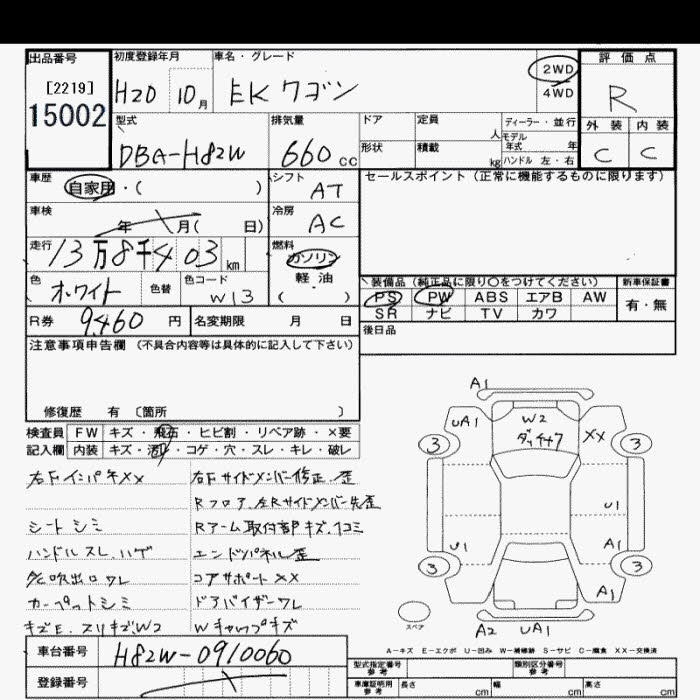 出品番号
[2219]
15002
初度登録年月
H20 10月
車名・グレード
EK ワゴン
2WD
4WD
評価点
R
外装 内装
C C
型式
DBA-H82W
排気量
660 cc
ドア 定員 人
形状 積載 kg
ディーラー・並行
モデル年式 年
ハンドル 左・右
車歴
自家用・( )
シフト
AT
セールスポイント (正常に機能するものに限ります)
車検
年 月( 日)
冷房
AC
走行
13万8千403 km
燃料
ガソリン
軽油
( )
色
ホワイト
色替
色コード
W13
装備品 (純正品に限り○をつけてください)
PS PW ABS エアB AW
SR ナビ TV カワ
新車保証書
有・無
R券 9460 円
名変期限 月 日
後日品
注意事項申告欄 (不具合内容等は具体的に記入して下さい)
修復歴 有 〔箇所 〕
検査員 FW キズ・飛石・ヒビ割・リペア跡・×要
記入欄 内装 キズ・汚れ・コゲ・穴・スレ・キレ・破レ
右Fインパネ××
右Fサイドメンバー修正、歪
Rフロア、左Rサイドメンバー先歪
シートシミ
Rアーム取付部キズ、凹コミ
ハンドルスレ、ハゲ
エンドパネル歪
吹出口ワレ
コアサポート××
カーペットシミ
ドアバイザーワレ
キズE、スリキズW2
Wキャップキズ
A1
UA1
W2
××
3
3
U1
U1
A1
3
3
A1
スペア
A2
UA1
A-キズ E-エクボ U-凹み W-補修跡 S-サビ C-腐食 ××-交換済
車台番号
H82W-0910060
登録番号
型式指定番号 参考
類別区分番号 参考
車庫証明用 参考
長さ cm
幅 cm
高さ cm